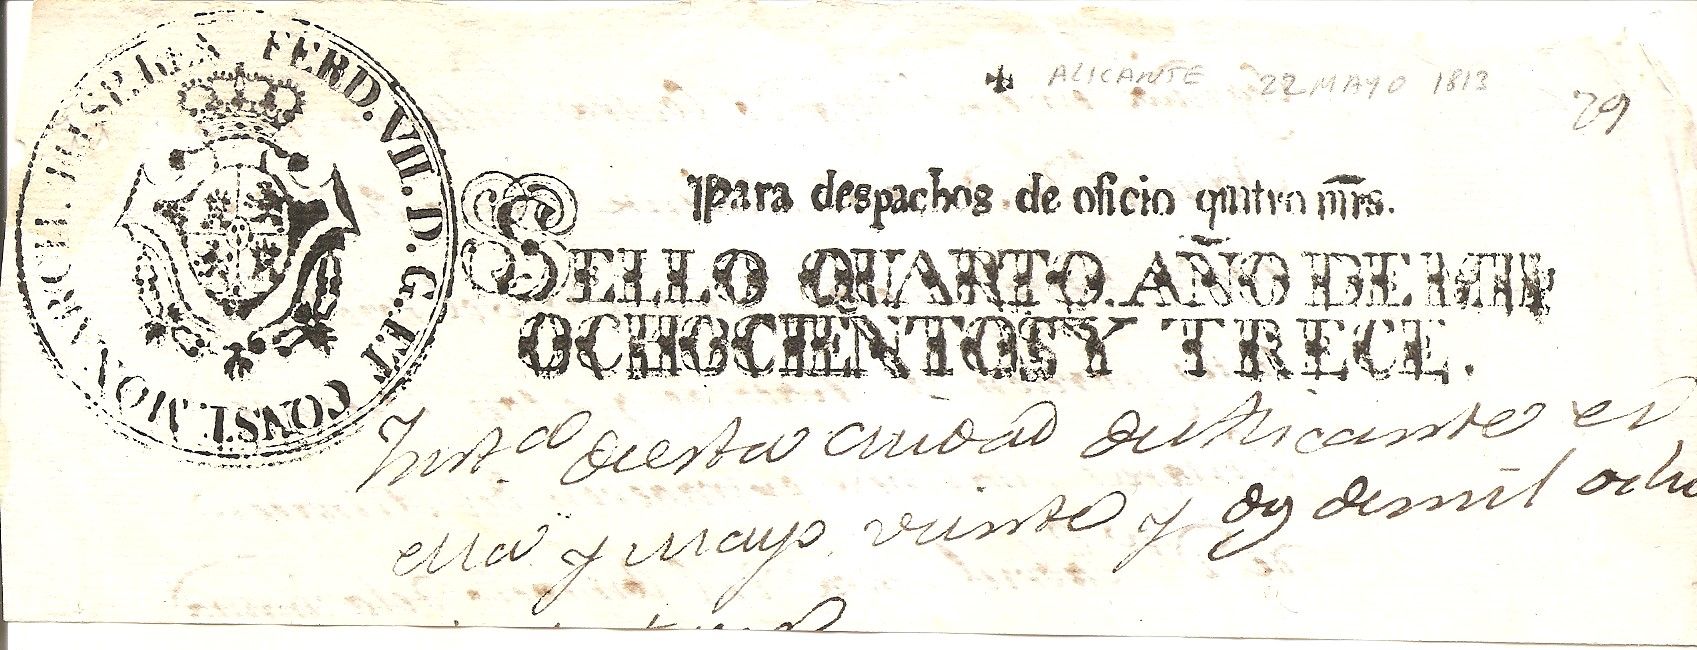 FERD. VII. D. G. ET CONST. MONARCH. HISP. REX
✠ ALICANTE 22 MAYO 1813
79
Para despachos de oficio quatro mrs.
SELLO QUARTO. AÑO DE MIL
OCHOCIENTOS Y TRECE.
desta ciudad de Alicante en
ella y Mayo veinte y dos de mil ocho